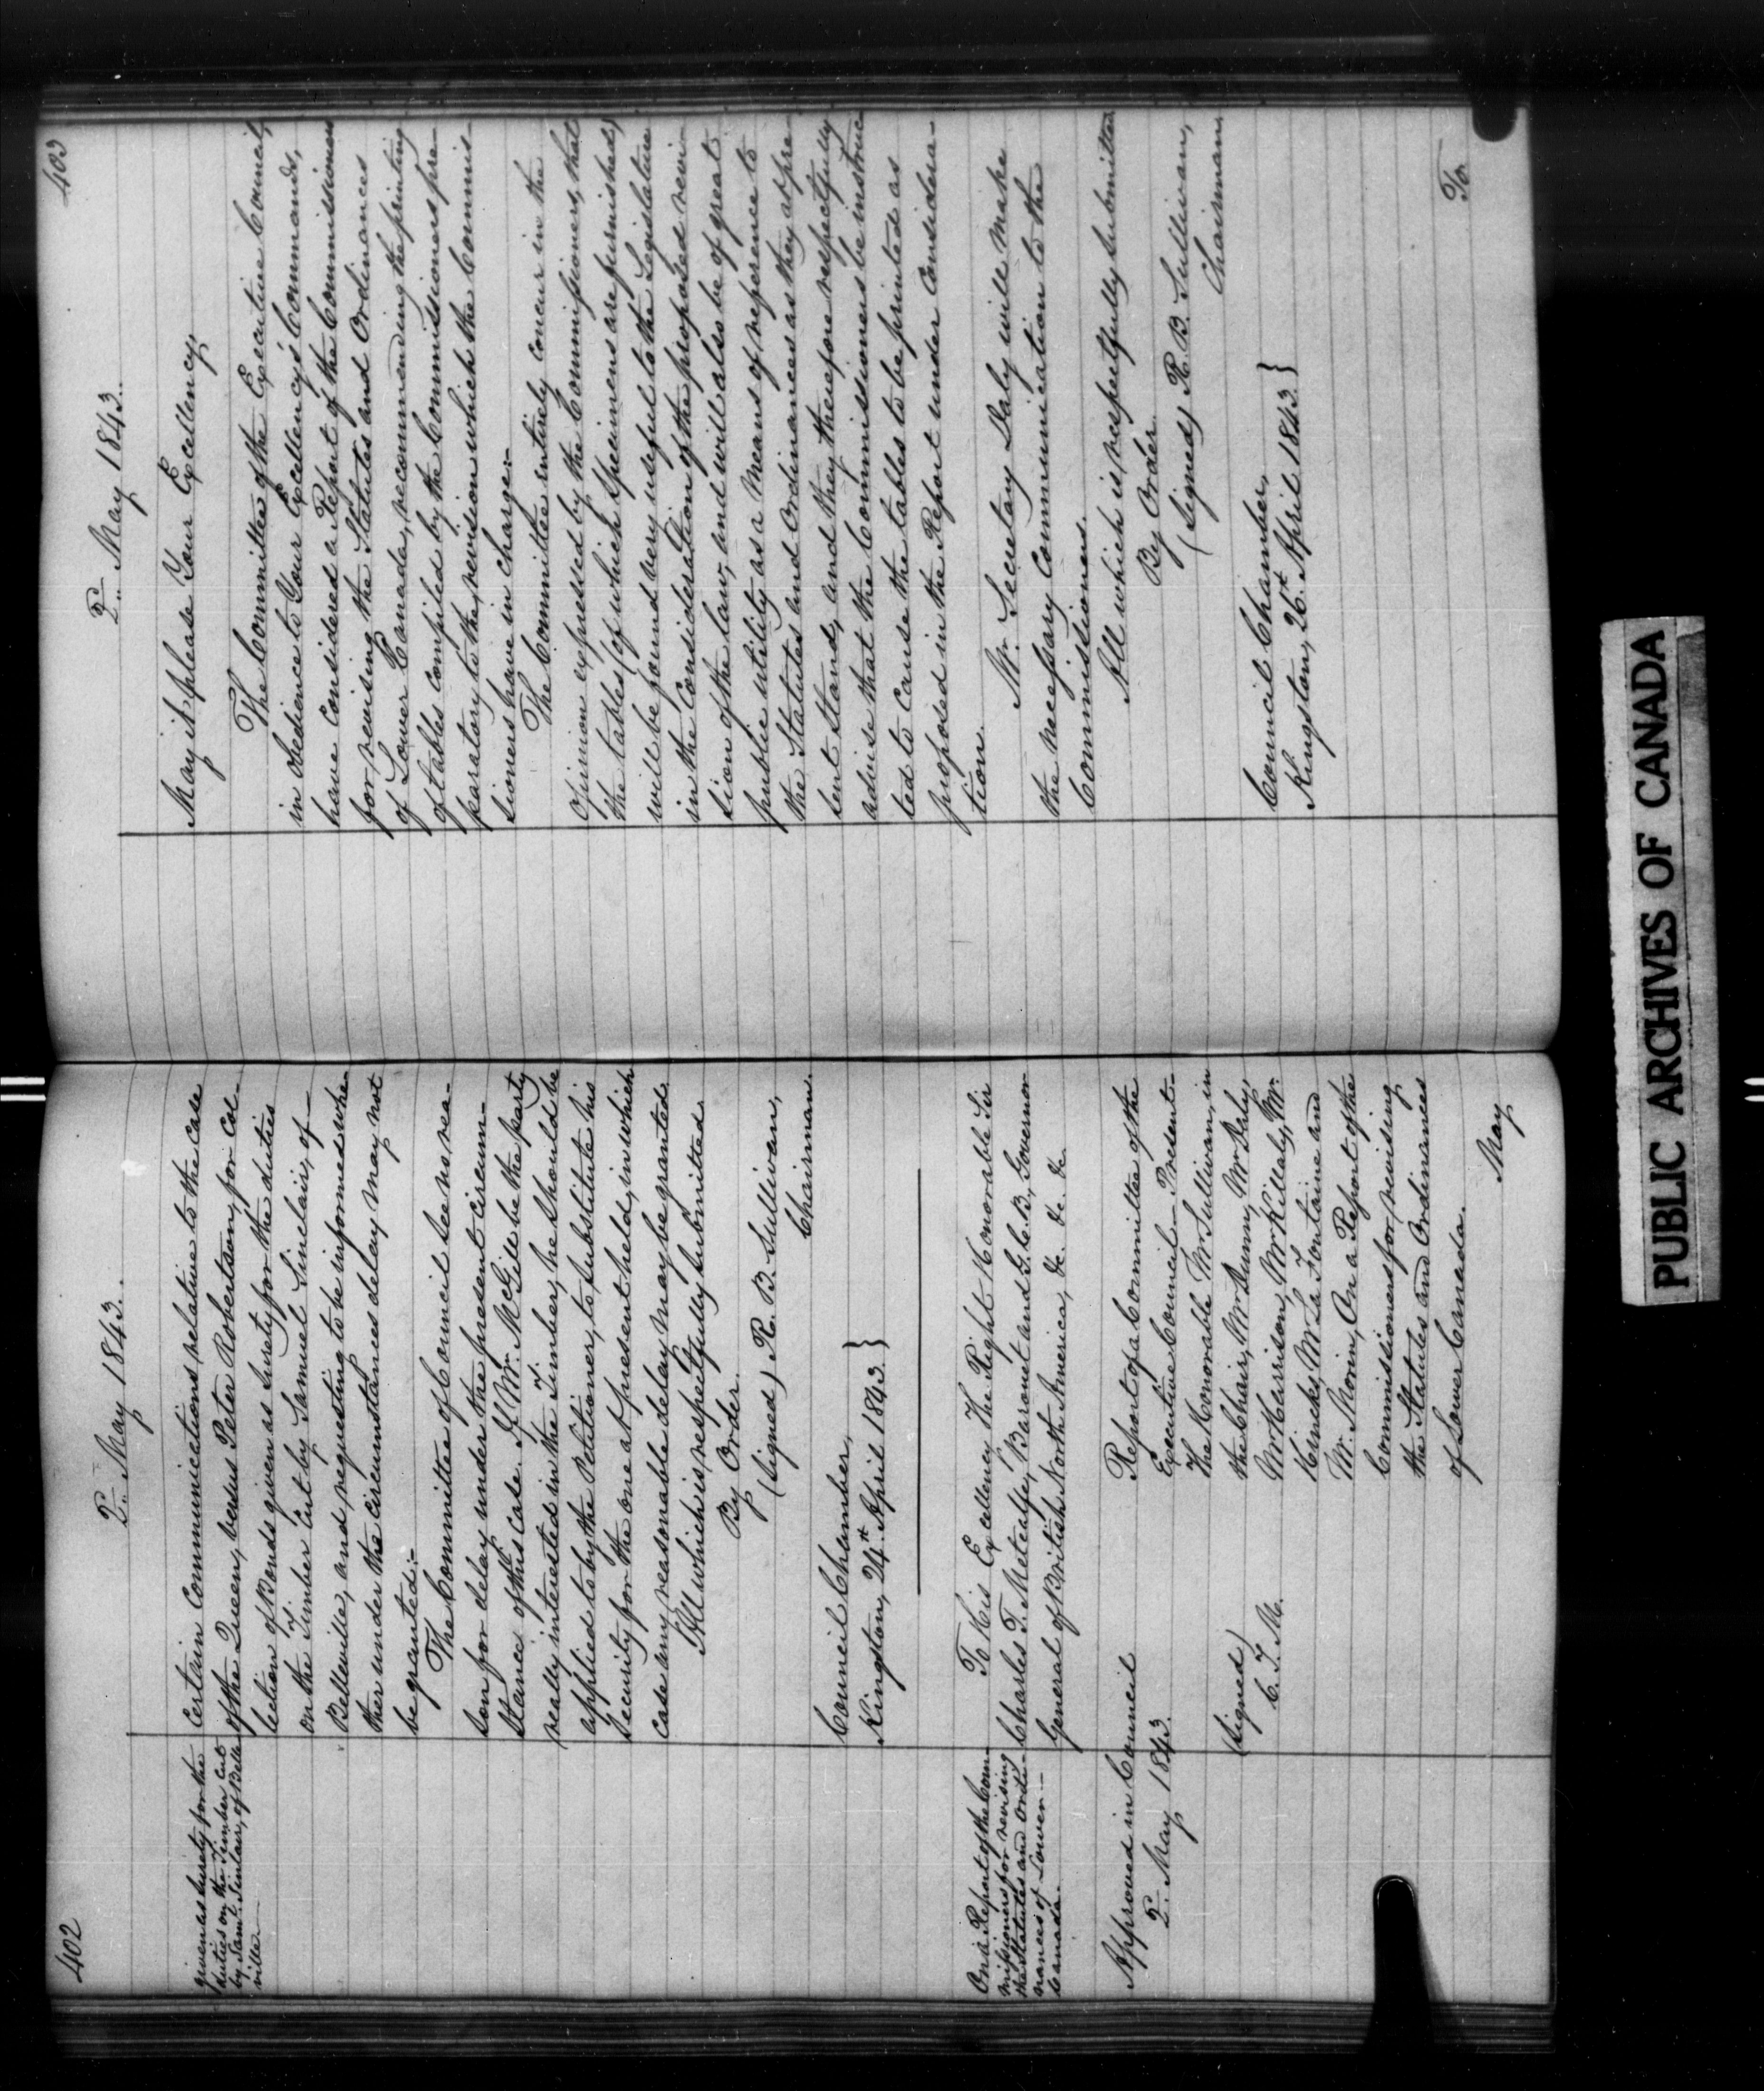 402
2d. May 1843.
given as Surety for the
duties on the Timber cut
by Saml. Sinclair, of Belle
ville—
Certain Communications relative to the case
of the Queen, versus Peter Robertson, for Col-
lection of Bonds given as Surety for the duties
on the Timber Cut by Samuel Sinclair, of—
Belleville, and requesting to be informed whe-
ther under the circumstances delay may not
be granted:—
The Committee of Council see no rea-
son for delay under the present circum-
stances of this Case. If Mr. McGill be the party
really interested in the Timber, he should be
applied to by the Petitioner, to substitute his
Security for the one at present held, in which
case any reasonable delay may be granted.
All which is respectfully Submitted.
By Order.
(Signed) R. B. Sullivan,
Chairman.
Council Chamber,
Kingston, 24th. April 1843. }
On a Report of the Com-
missioners for revising
the Statutes and Ordi-
nances of Lower—
Canada.
To His Excellency The Right Honorable Sir
Charles T. Metcalfe, Baronet and G.C.B, Governor
General of British North America, &c. &c. &c.
Approved in Council
2d. May 1843.
(Signed)
C. T. M.
Report of a Committee of the
Executive Council—Present—
The Honorable Mr Sullivan, in
the Chair, Mr Dunn, Mr Daly,
Mr Harrison, Mr Killaly, Mr.
Hincks, Mr La Fontaine and
Mr. Morin, On a Report of the
Commissioners for revising
the Statutes and Ordinances
of Lower Canada.
May
403
2d. May 1843.
May it please Your Excellency,
The Committee of the Executive Council,
in obedience to Your Excellency's Commands,
have Considered a Report of the Commissioners
for revising the Statutes and Ordinances
of Lower Canada, recommending the printing
of tables compiled by the Commissioners pre-
paratory to the revision which the Commis-
sioners have in charge:—
The Committee entirely concur in the
opinion expressed by the Commissioners, that
the tables (of which Specimens are furnished)
will be found very useful to the Legislature
in the Consideration of the proposed revi-
sion of the law, and will also be of great
public utility as a means of reference to
the Statutes and Ordinances as they at pre-
sent stand, and they therefore respectfully
advise that the Commissioners be instruc
ted to cause the tables to be printed as
proposed in the Report under Considera-
tion.
Mr. Secretary Daly will make
the necessary Communication to the
Commissioners.
All which is respectfully Submitted
By Order.
(Signed) R. B. Sullivan,
Chairman.
Council Chamber,
Kingston, 26th April 1843. }
To
PUBLIC ARCHIVES OF CANADA